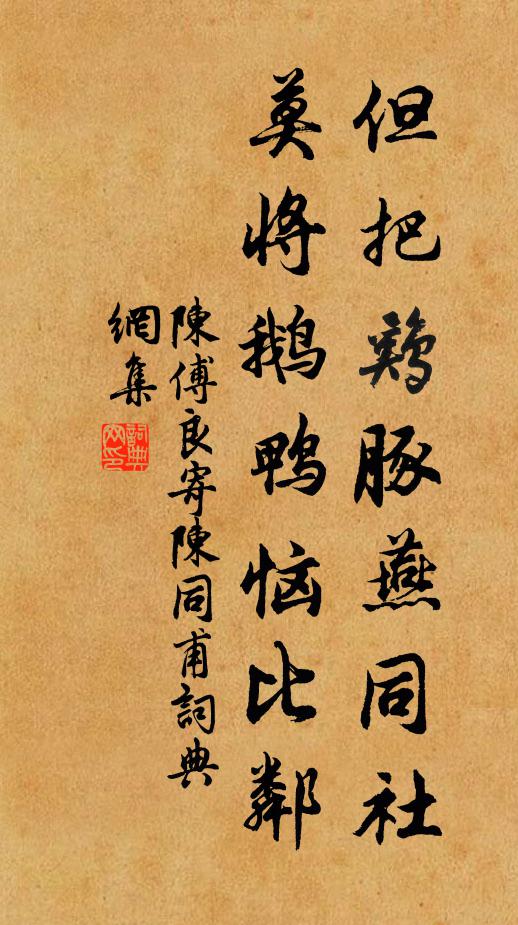 但把鷄豚燕同社
莫將鵝鴨恼比鄰
陳傅良寄陳同甫詞典
網集
詞典
网印